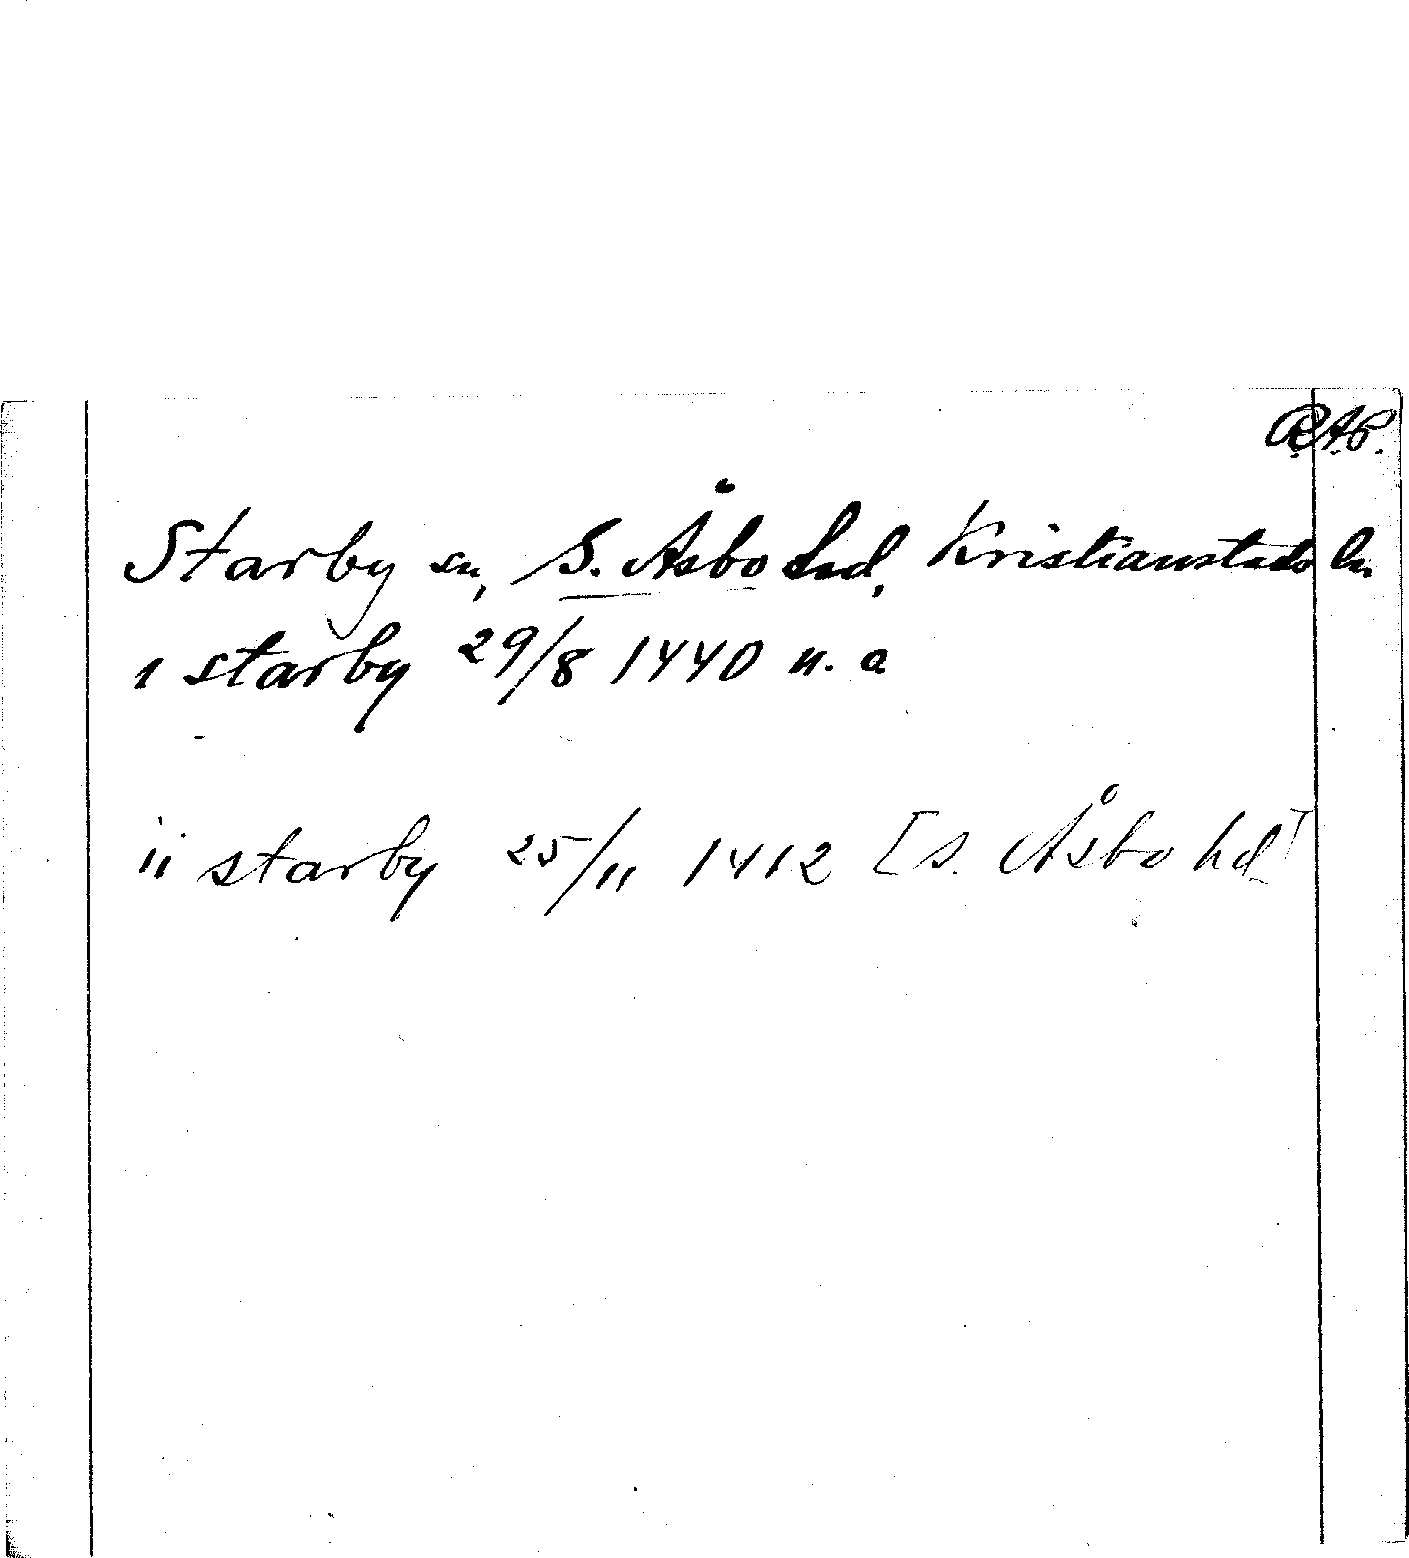 R.A.P.
Starby sn, S. Åsbo hd, Kristianstads ln
i starby 29/8 1440 u. a
ii starby 25/11 1412 [S. Åsbo hd]